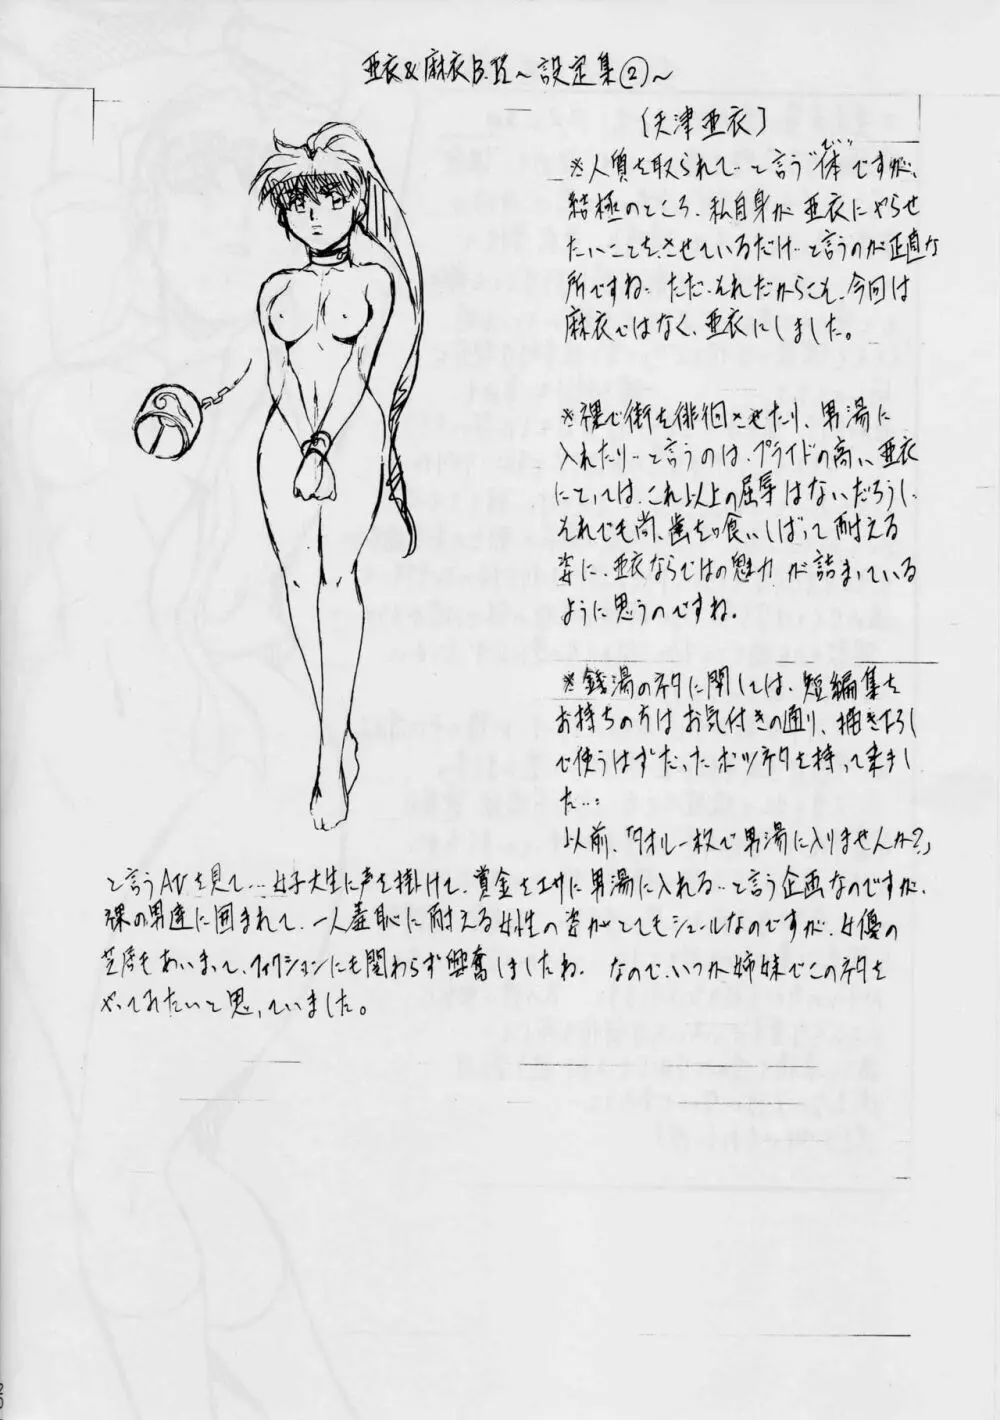 亜衣&麻衣B.R.～設定集②～
〔天津亜衣〕
※人質を取られて…と言う"体"ですが、
てい
結極のところ、私自身が亜衣にやらせ
たいことをさせているだけ…と言うのが正直な
所ですね…ただ、それだからこそ、今回は
麻衣ではなく、亜衣にしました。
※裸で街を徘徊させたり、男湯に
入れたり…と言うのは、プライドの高い亜衣
にとっては、これ以上の屈辱はないだろうし、
それでも尚、歯を喰いしばって耐える
姿に、亜衣ならではの魅力が詰まっている
ように思うのですね。
※銭湯のネタに関しては、短編集を
お持ちの方はお気付きの通り、描き下ろし
で使うはずだったボツネタを持って来まし
た…:
以前、「タオル一枚で男湯に入りませんか?」
と言うAVを見て…女子大生に声を掛けて、賞金をエサに男湯に入れる…と言う企画なのですが、
裸の男達に囲まれて、一人羞恥に耐える女性の姿がとてもシュールなのですが、女優の
芝居もあいまって、フィクションにも関わらず興奮しましたね。なので、いつか姉妹でこのネタを
やってみたいと思っていました。